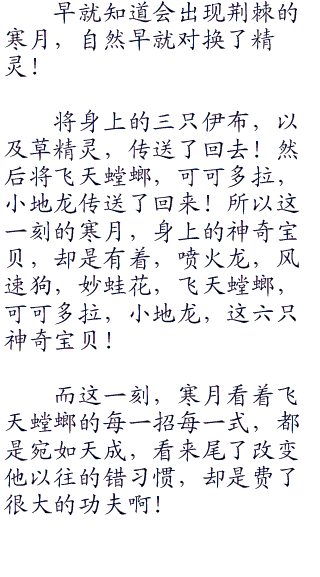 早就知道会出现荆棘的
寒月，自然早就对换了精
灵！
将身上的三只伊布，以
及草精灵，传送了回去！然
后将飞天螳螂，可可多拉，
小地龙传送了回来！所以这
一刻的寒月，身上的神奇宝
贝，却是有着，喷火龙，风
速狗，妙蛙花，飞天螳螂，
可可多拉，小地龙，这六只
神奇宝贝！
而这一刻，寒月看着飞
天螳螂的每一招每一式，都
是宛如天成，看来尾了改变
他以往的错习惯，却是费了
很大的功夫啊！